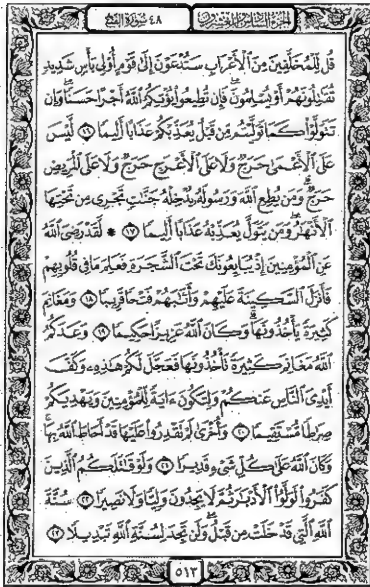 الجزء السادس والعشرون ٤٨ سورة الفتح
قُل لِّلْمُخَلَّفِينَ مِنَ ٱلْأَعْرَابِ سَتُدْعَوْنَ إِلَىٰ قَوْمٍ أُو۟لِى بَأْسٍ شَدِيدٍ
تُقَٰتِلُونَهُمْ أَوْ يُسْلِمُونَ ۖ فَإِن تُطِيعُوا۟ يُؤْتِكُمُ ٱللَّهُ أَجْرًا حَسَنًا ۖ وَإِن
تَتَوَلَّوْا۟ كَمَا تَوَلَّيْتُم مِّن قَبْلُ يُعَذِّبْكُمْ عَذَابًا أَلِيمًا ١٦ لَّيْسَ
عَلَى ٱلْأَعْمَىٰ حَرَجٌ وَلَا عَلَى ٱلْأَعْرَجِ حَرَجٌ وَلَا عَلَى ٱلْمَرِيضِ
حَرَجٌ ۗ وَمَن يُطِعِ ٱللَّهَ وَرَسُولَهُۥ يُدْخِلْهُ جَنَّٰتٍ تَجْرِى مِن تَحْتِهَا
ٱلْأَنْهَٰرُ ۖ وَمَن يَتَوَلَّ يُعَذِّبْهُ عَذَابًا أَلِيمًا ١٧ * لَّقَدْ رَضِىَ ٱللَّهُ
عَنِ ٱلْمُؤْمِنِينَ إِذْ يُبَايِعُونَكَ تَحْتَ ٱلشَّجَرَةِ فَعَلِمَ مَا فِى قُلُوبِهِمْ
فَأَنزَلَ ٱلسَّكِينَةَ عَلَيْهِمْ وَأَثَٰبَهُمْ فَتْحًا قَرِيبًا ١٨ وَمَغَانِمَ
كَثِيرَةً يَأْخُذُونَهَا ۗ وَكَانَ ٱللَّهُ عَزِيزًا حَكِيمًا ١٩ وَعَدَكُمُ
ٱللَّهُ مَغَانِمَ كَثِيرَةً تَأْخُذُونَهَا فَعَجَّلَ لَكُمْ هَٰذِهِۦ وَكَفَّ
أَيْدِىَ ٱلنَّاسِ عَنكُمْ وَلِتَكُونَ ءَايَةً لِّلْمُؤْمِنِينَ وَيَهْدِيَكُمْ
صِرَٰطًا مُّسْتَقِيمًا ٢٠ وَأُخْرَىٰ لَمْ تَقْدِرُوا۟ عَلَيْهَا قَدْ أَحَاطَ ٱللَّهُ بِهَا ۚ
وَكَانَ ٱللَّهُ عَلَىٰ كُلِّ شَىْءٍ قَدِيرًا ٢١ وَلَوْ قَٰتَلَكُمُ ٱلَّذِينَ
كَفَرُوا۟ لَوَلَّوُا۟ ٱلْأَدْبَٰرَ ثُمَّ لَا يَجِدُونَ وَلِيًّا وَلَا نَصِيرًا ٢٢ سُنَّةَ
ٱللَّهِ ٱلَّتِى قَدْ خَلَتْ مِن قَبْلُ ۖ وَلَن تَجِدَ لِسُنَّةِ ٱللَّهِ تَبْدِيلًا ٢٣
٥١٣